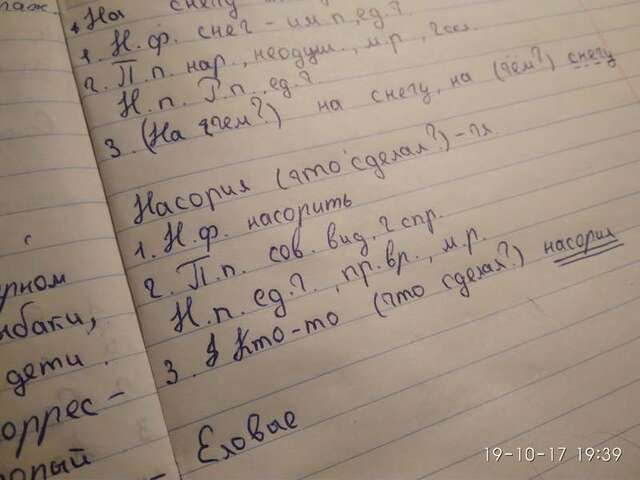 На снегу
1. Н.ф. снег - им.п., ед.ч.
2. П.п. нар., неодуш., м.р., 2 скл.
Н.п. П.п. ед.ч.
3. (На чём?) на снегу, на (чём?) снегу
Насорил (что сделал?) - гл.
1. Н.ф. насорить
2. П.п. сов. вид. 2 спр.
Н.п. ед.ч., пр.вр., м.р.
3. Кто-то (что сделал?) насорил
Еловые
с
рном
ыбаки,
дети.
оррес-
19-10-17 19:39